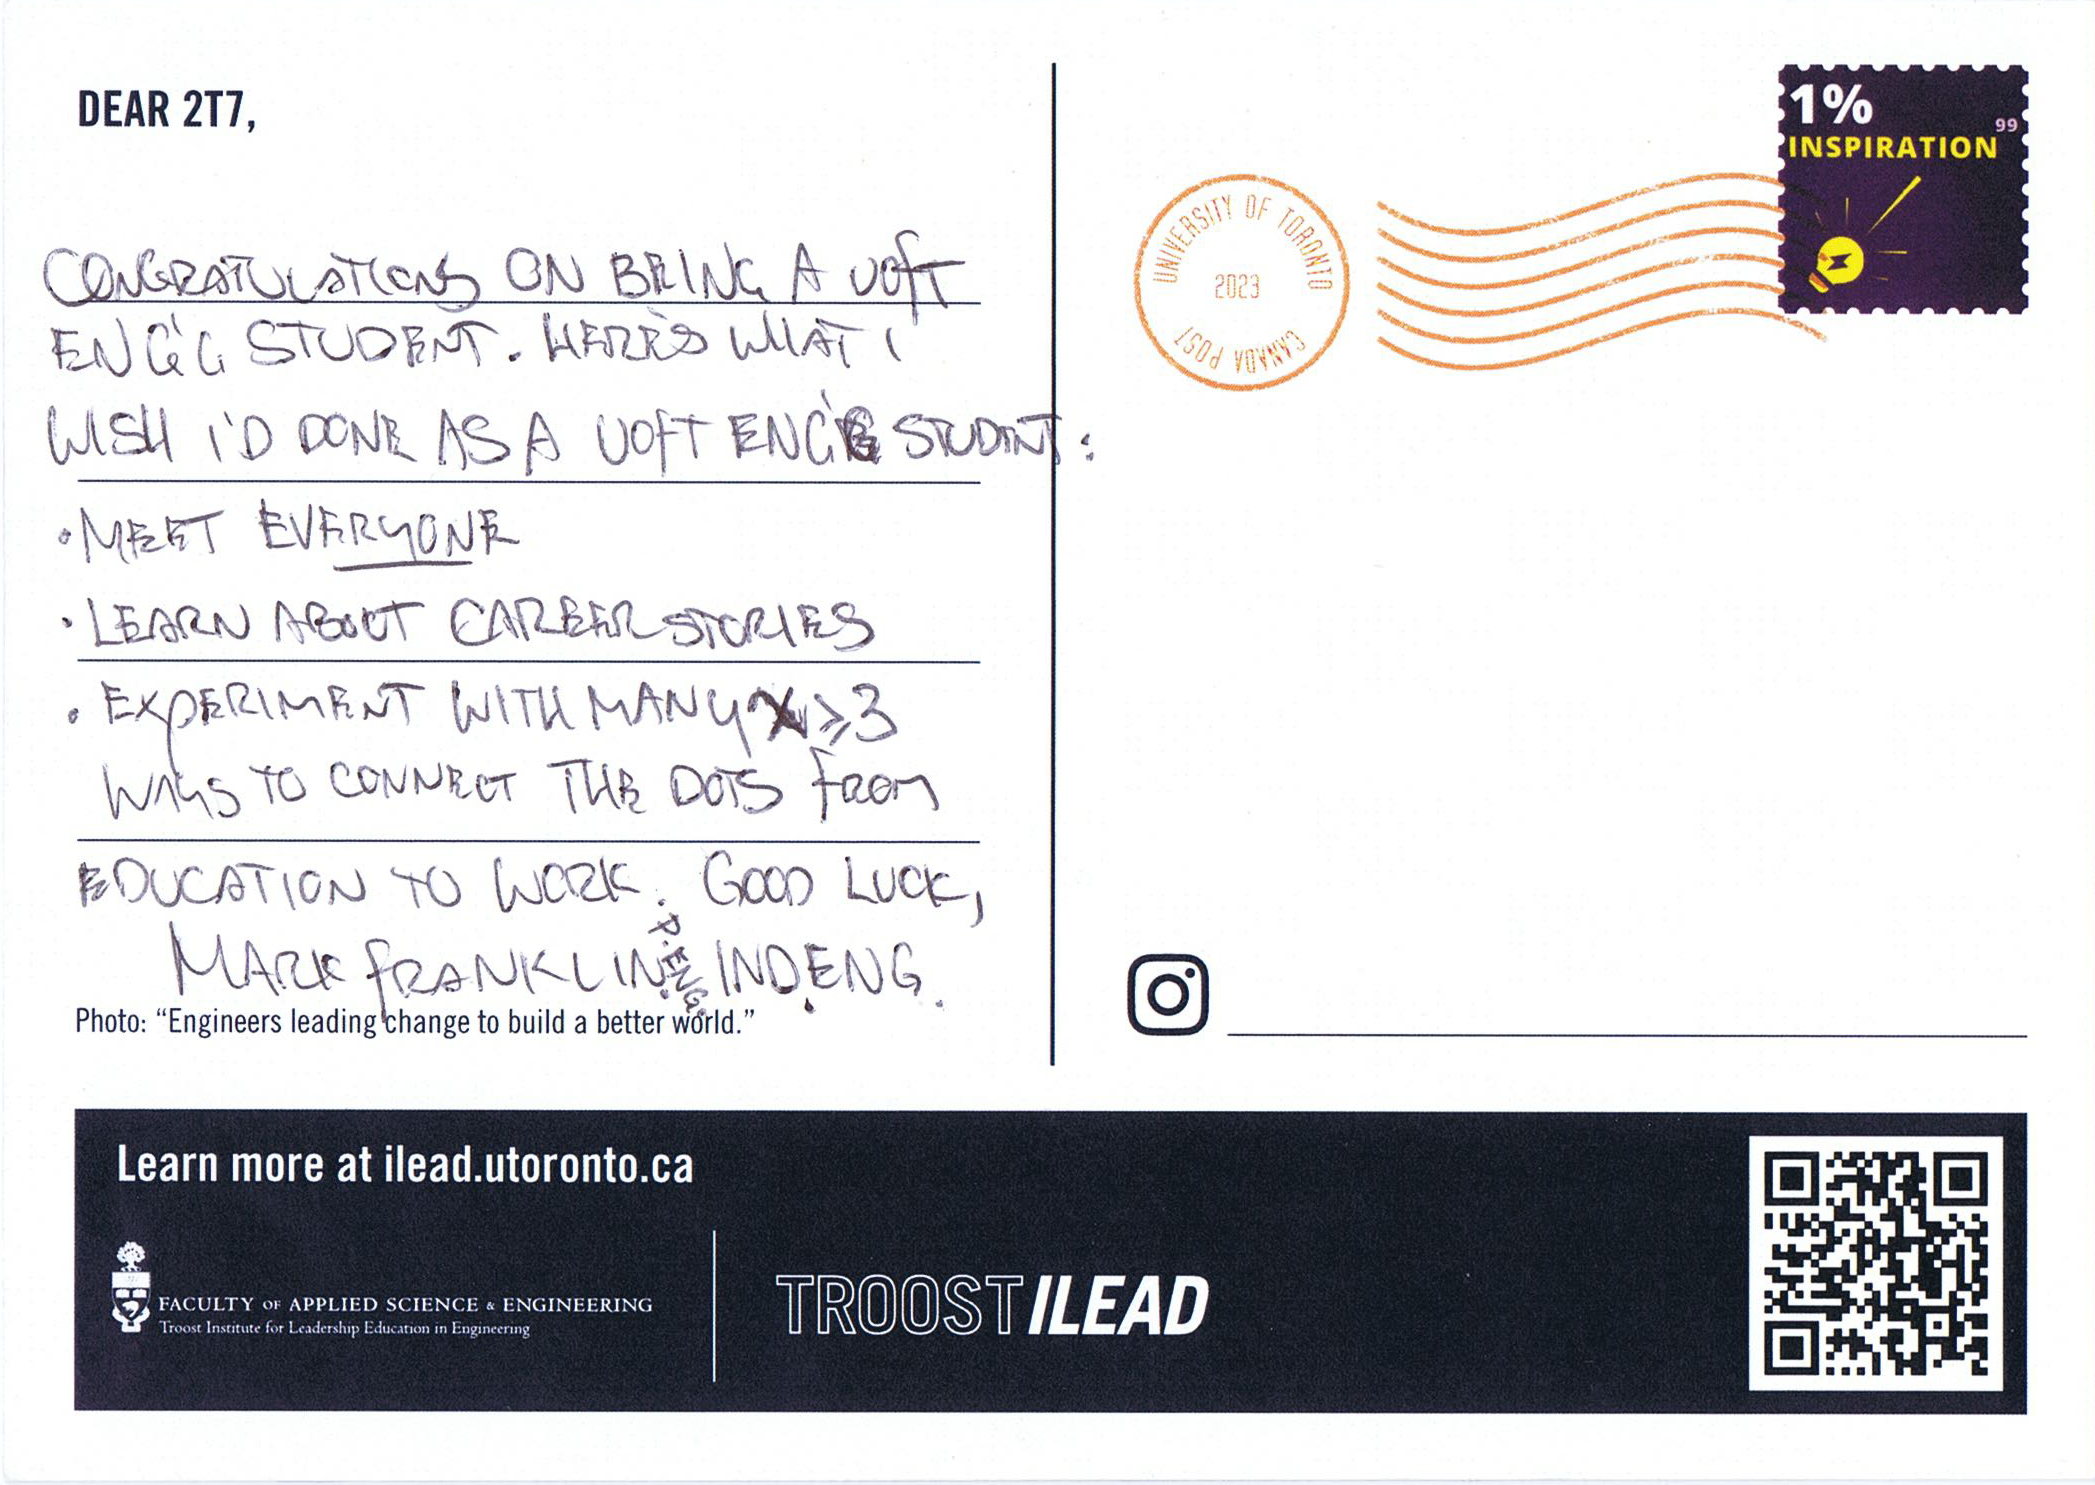 DEAR 2T7,
CONGRATULATIONS ON BEING A UOFT
ENG'G STUDENT. HERE'S WHAT I
WISH I'D DONE AS A UOFT ENG'G STUDENT:
• MEET EVERYONE
• LEARN ABOUT CAREER STORIES
• EXPERIMENT WITH MANY ≥3
WAYS TO CONNECT THE DOTS FROM
EDUCATION TO WORK. GOOD LUCK,
MARK FRANKLIN, P.ENG. IND.ENG.
Photo: “Engineers leading change to build a better world.”
UNIVERSITY OF TORONTO
2023
CANADA POST
1%
99
INSPIRATION
Learn more at ilead.utoronto.ca
FACULTY OF APPLIED SCIENCE & ENGINEERING
Troost Institute for Leadership Education in Engineering
TROOST ILEAD